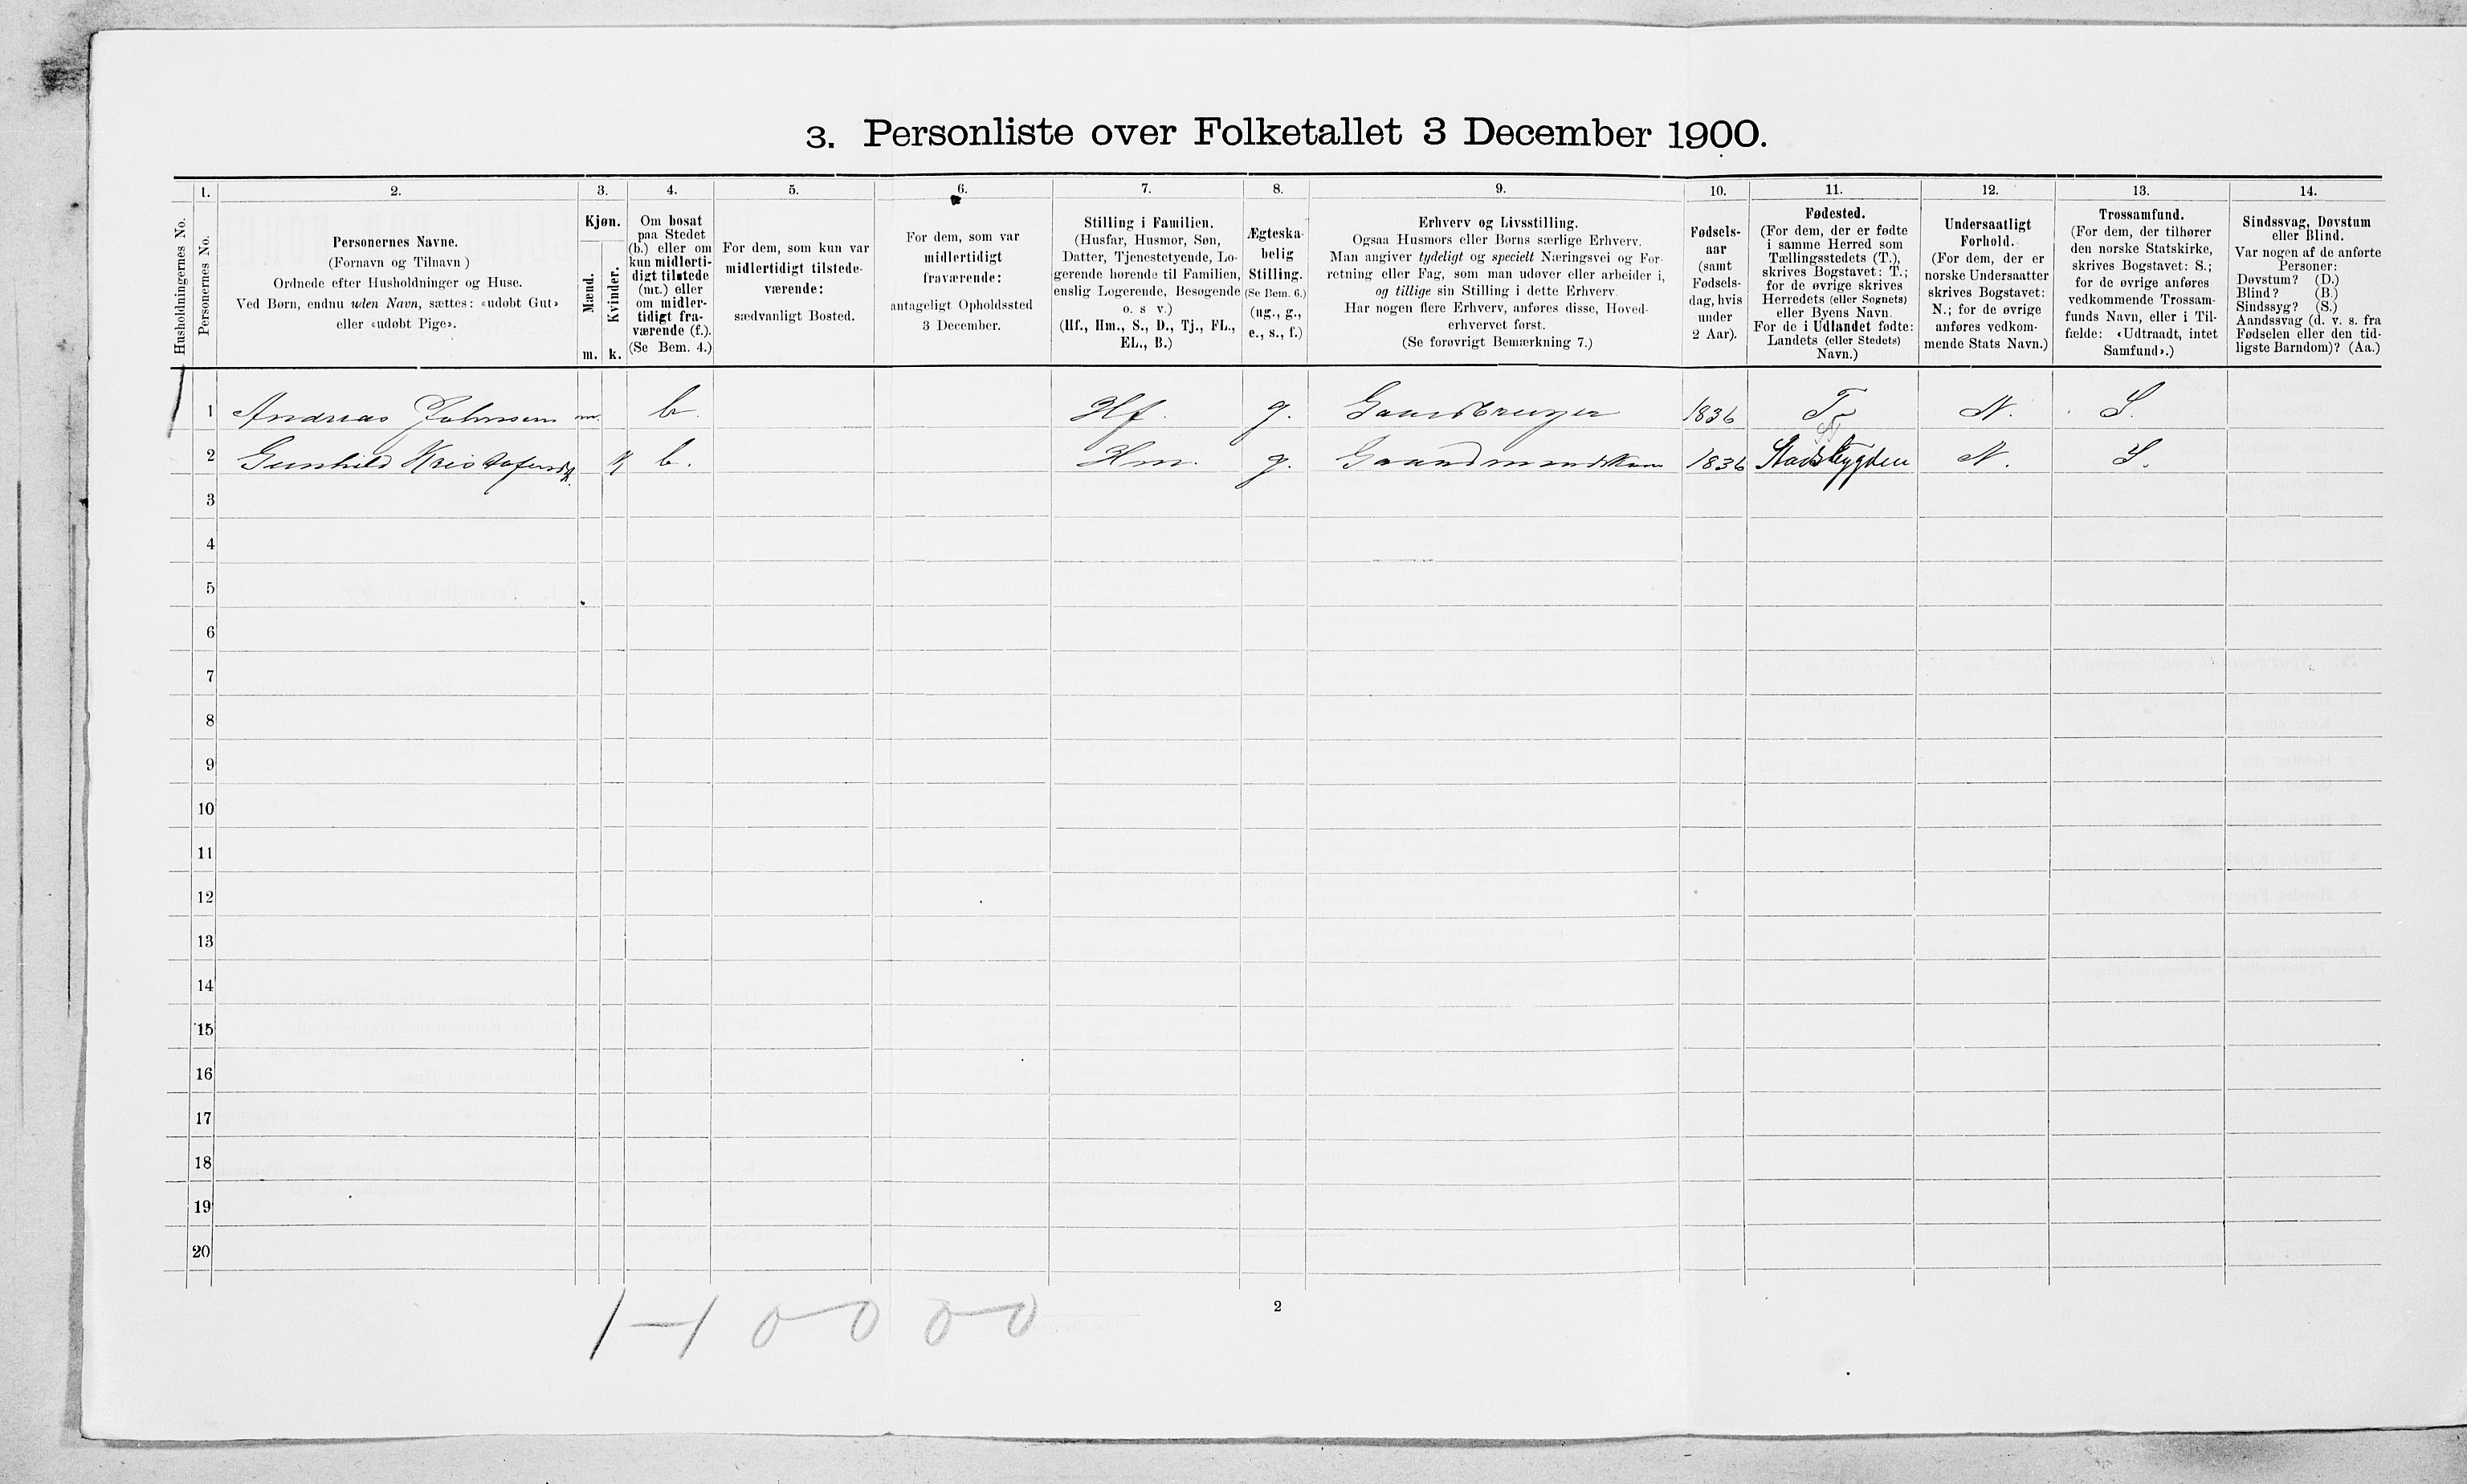 3. Personliste over Folketallet 3 December 1900.
1. 2. 3. 4. 5. 6. 7. 8. 9. 10. 11. 12. 13. 14.
Husholdningernes No.
Personernes No.
Personernes Navne.
(Fornavn og Tilnavn)
Ordnede efter Husholdninger og Huse.
Ved Børn, endnu uden Navn, sættes: «udøbt Gut»
eller «udøbt Pige».
Kjøn.
Mænd.
Kvinder.
m. k.
Om bosat
paa Stedet
(b.) eller om
kun midlerti-
digt tilstede
(mt.) eller
om midler-
tidigt fra-
værende (f.).
(Se Bem. 4.)
For dem, som kun var
midlertidigt tilstede-
værende:
sædvanligt Bosted.
For dem, som var
midlertidigt
fraværende:
antageligt Opholdssted
3 December.
Stilling i Familien.
(Husfar, Husmor, Søn,
Datter, Tjenestetyende, Lo-
gerende hørende til Familien,
enslig Logerende, Besøgende
o. s v.)
(Hf., Hm., S., D., Tj., FL.,
EL., B.)
Ægteska-
belig
Stilling.
(Se Bem. 6.)
(ug., g.,
e., s., f.)
Erhverv og Livsstilling.
Ogsaa Husmors eller Børns særlige Erhverv.
Man angiver tydeligt og specielt Næringsvei og For-
retning eller Fag, som man udøver eller arbeider i,
og tillige sin Stilling i dette Erhverv.
Har nogen flere Erhverv, anføres disse, Hoved-
erhvervet først.
(Se forøvrigt Bemærkning 7.)
Fødsels-
aar
(samt
Fødsels-
dag, hvis
under
2 Aar).
Fødested.
(For dem, der er fødte
i samme Herred som
Tællingsstedets (T.),
skrives Bogstavet: T.;
for de øvrige skrives
Herredets (eller Sognets)
eller Byens Navn.
For de i Udlandet fødte:
Landets (eller Stedets)
Navn.)
Undersaatligt
Forhold.
(For dem, der er
norske Undersaatter
skrives Bogstavet:
N.; for de øvrige
anføres vedkom-
mende Stats Navn.)
Trossamfund.
(For dem, der tilhører
den norske Statskirke,
skrives Bogstavet: S.;
for de øvrige anføres
vedkommende Trossam-
funds Navn, eller i Til-
fælde: «Udtraadt, intet
Samfund».)
Sindssvag, Døvstum
eller Blind.
Var nogen af de anførte
Personer:
Døvstum? (D.)
Blind? (B.)
Sindssyg? (S.)
Aandssvag (d. v. s. fra
Fødselen eller den tid-
ligste Barndom)? (Aa.)
1 1 Andreas Johnsen m. b. Hf. g. Gaardbruger 1836 T N. S.
2 Gunhild k b. Hm. g. 1836 Stadsbygden N. S.
3
4
5
6
7
8
9
10
11
12
13
14
15
16
17
18
19
20
1—1 0—0 0—0
2